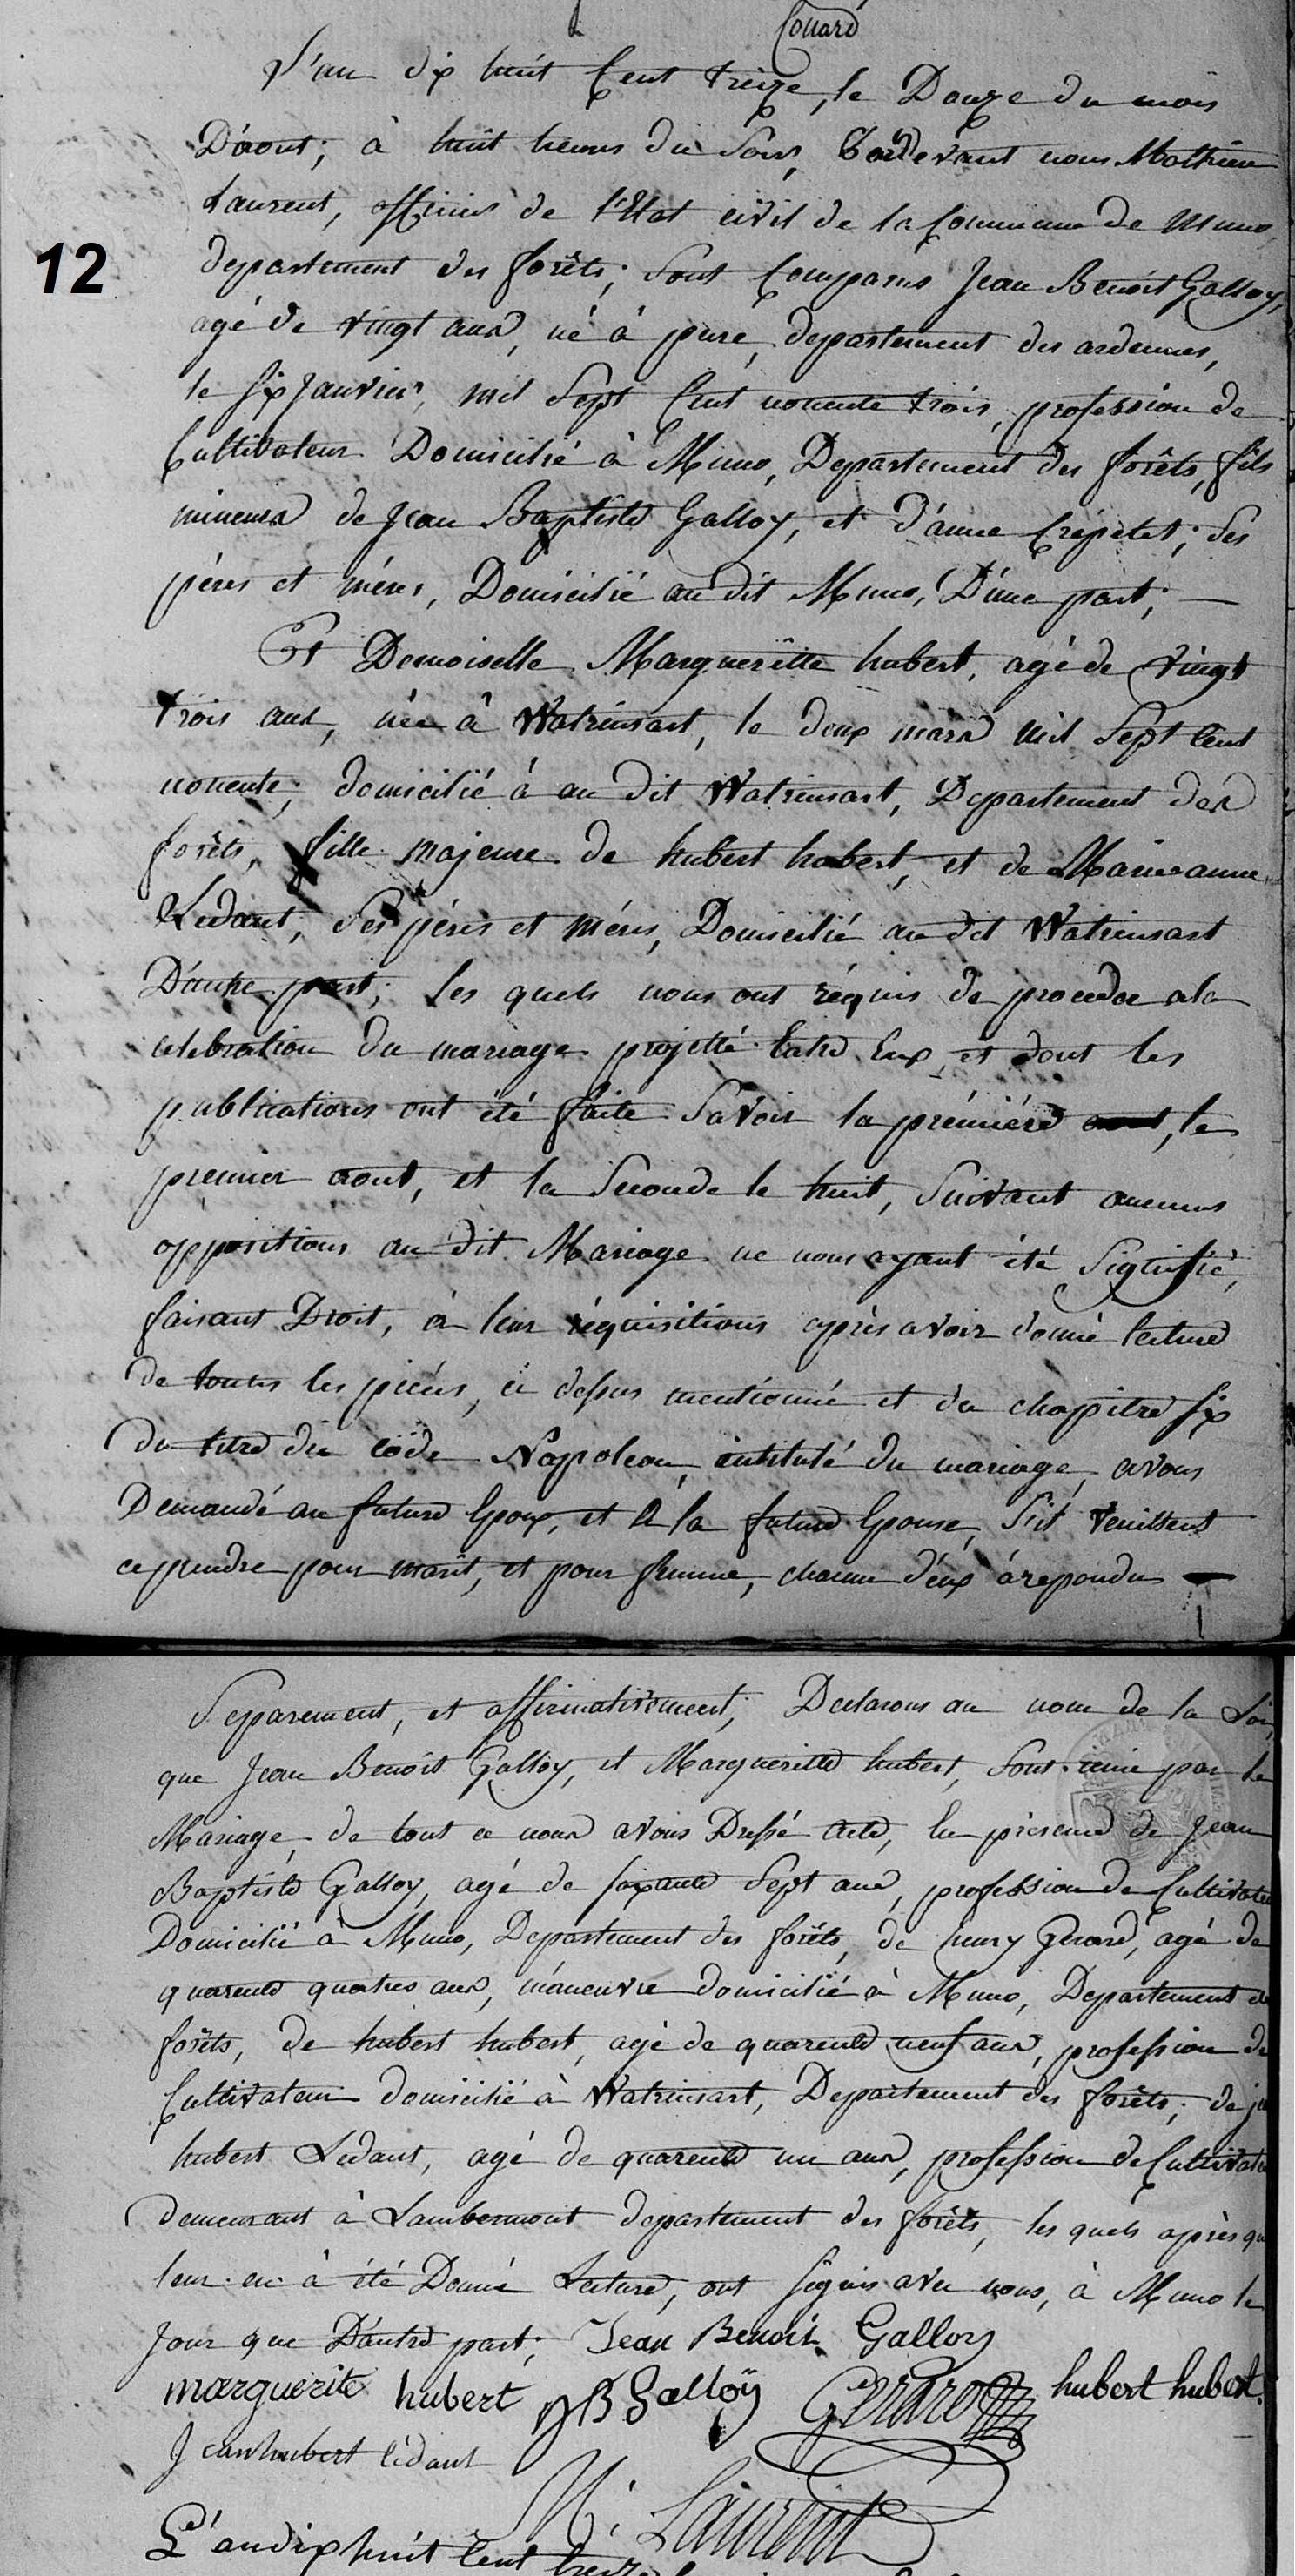 Couard
L'an dix huit Cent treize, le Douze du mois
D'aout; à huit heures du Soir, Pardevant nous Mathieu
Laurent, officier de l'Etat civil de la Commune de Muno,
departement des forêts, Sont Comparus Jean Benoit Galloy,
agé de vingt ans, né à pure, departement des ardennes,
le six Janvier, mil Sept Cent nonente trois, profession de
Cultivateur Domicilié à Muno, Departement des forêts, fils
mineur de Jean Baptiste Galloy, et d'anne Crépelet; Ses
péres et méres, Domicilié au dit Muno, D'une part;
Et Demoiselle Marguerîtte hubert, agé de vingt
trois ans, née à Watrinsart, le deux mars mil Sept Cent
nonente; domicilié à au dit Watrinsart, Departement des
forêts, fille majeure de hubert hubert, et de Marieanne
Ledant, Ses péres et méres, Domicilié au dit Watrinsart
D'autre part; les quels nous ont réquis de proceder ala
celebration du mariage projetté Entre Eux, et dont les
publications ont été faite Savoir la prémiére, le
premier aout, et la Seconde le huit, Suivant aucunes
oppositions au dit Mariage ne nous ayant été Signifié,
faisant Droit, à leur réquisitions après avoir donné lecture
de toutes les piéces, ci dessus mentionné et du chapitre six
du titre du code Napoleon, intitulé du mariage, avons
Demandé au future Epoux, et à la future Epouse, S'il veuillent
ce prendre pour marit, et pour femme, chacun d'eux à repondu
Separement, et affirmativement; Declarons au nom de la Loi,
que Jean Benoit Galloy, et Marguerîtte hubert, Sont unie par le
Mariage, de tout ce nous avons Dressé Acte, En présence de Jean
Baptiste Galloy, agé de soixante Sept ans, profession de Cultivateu
Domicilié à Muno, Departement des forêts, de henry Gerard, agé de
quarente quatres ans, máneuvre domicilié à Muno, Departement de
forêts, de hubert hubert, agé de quarente neuf ans, profession de
Cultivateur domicilié à Watrinsart, Departement des forêts; de je
hubert Ledant, agé de quarente un ans, profession de Cultivate
demeurant à Lambermont departement des forêts, les quels après qu
leur en à été Donné Lecture, ont signés avec nous, à Muno le
Jour que D'autre part; Jean Benoit Galloy
marguerite hubert JB Galloÿ Gerard hubert hubert
Jean hubert lédant
M. Laurent
L'an dix huit Cent treize